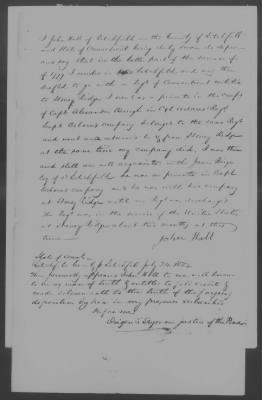 I John Hall of Litchfield in the County of Litchfield
and State of Connecticut being duly sworn do depose
and say that in the latter part of the summer of
of 1777 I resided in Litchfield and was then
drafted to go with a regt of Connecticut militia
to Stony Ridge I was as a private in the company
of Capt Alexander through in Col Regt
Capt Osborns company belonged to the same Regt
and went and returned to & from Stony Ridge
at the same time my company did, I was then
and still am well acquainted with
of Litchfield he was a private in Capt
Osborns company and he was with his company
at Stony Ridge until our Regt was discharged
the Regt was in the service of the United States
at Stony Ridge about two months at that
time —
John Hall
State of Connecticut
Litchfield County Litchfield July 1832
Then personally appeared John Hall to me well known
to be a man of truth & entitled to full credit &
made solemn oath to the truth of the foregoing
deposition by him in my presence subscribed
Before me
Origen S Seymour Justice of the Peace